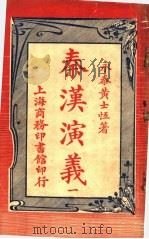 泰黃士恆著
秦漢演義 一
上海商務印書館印行